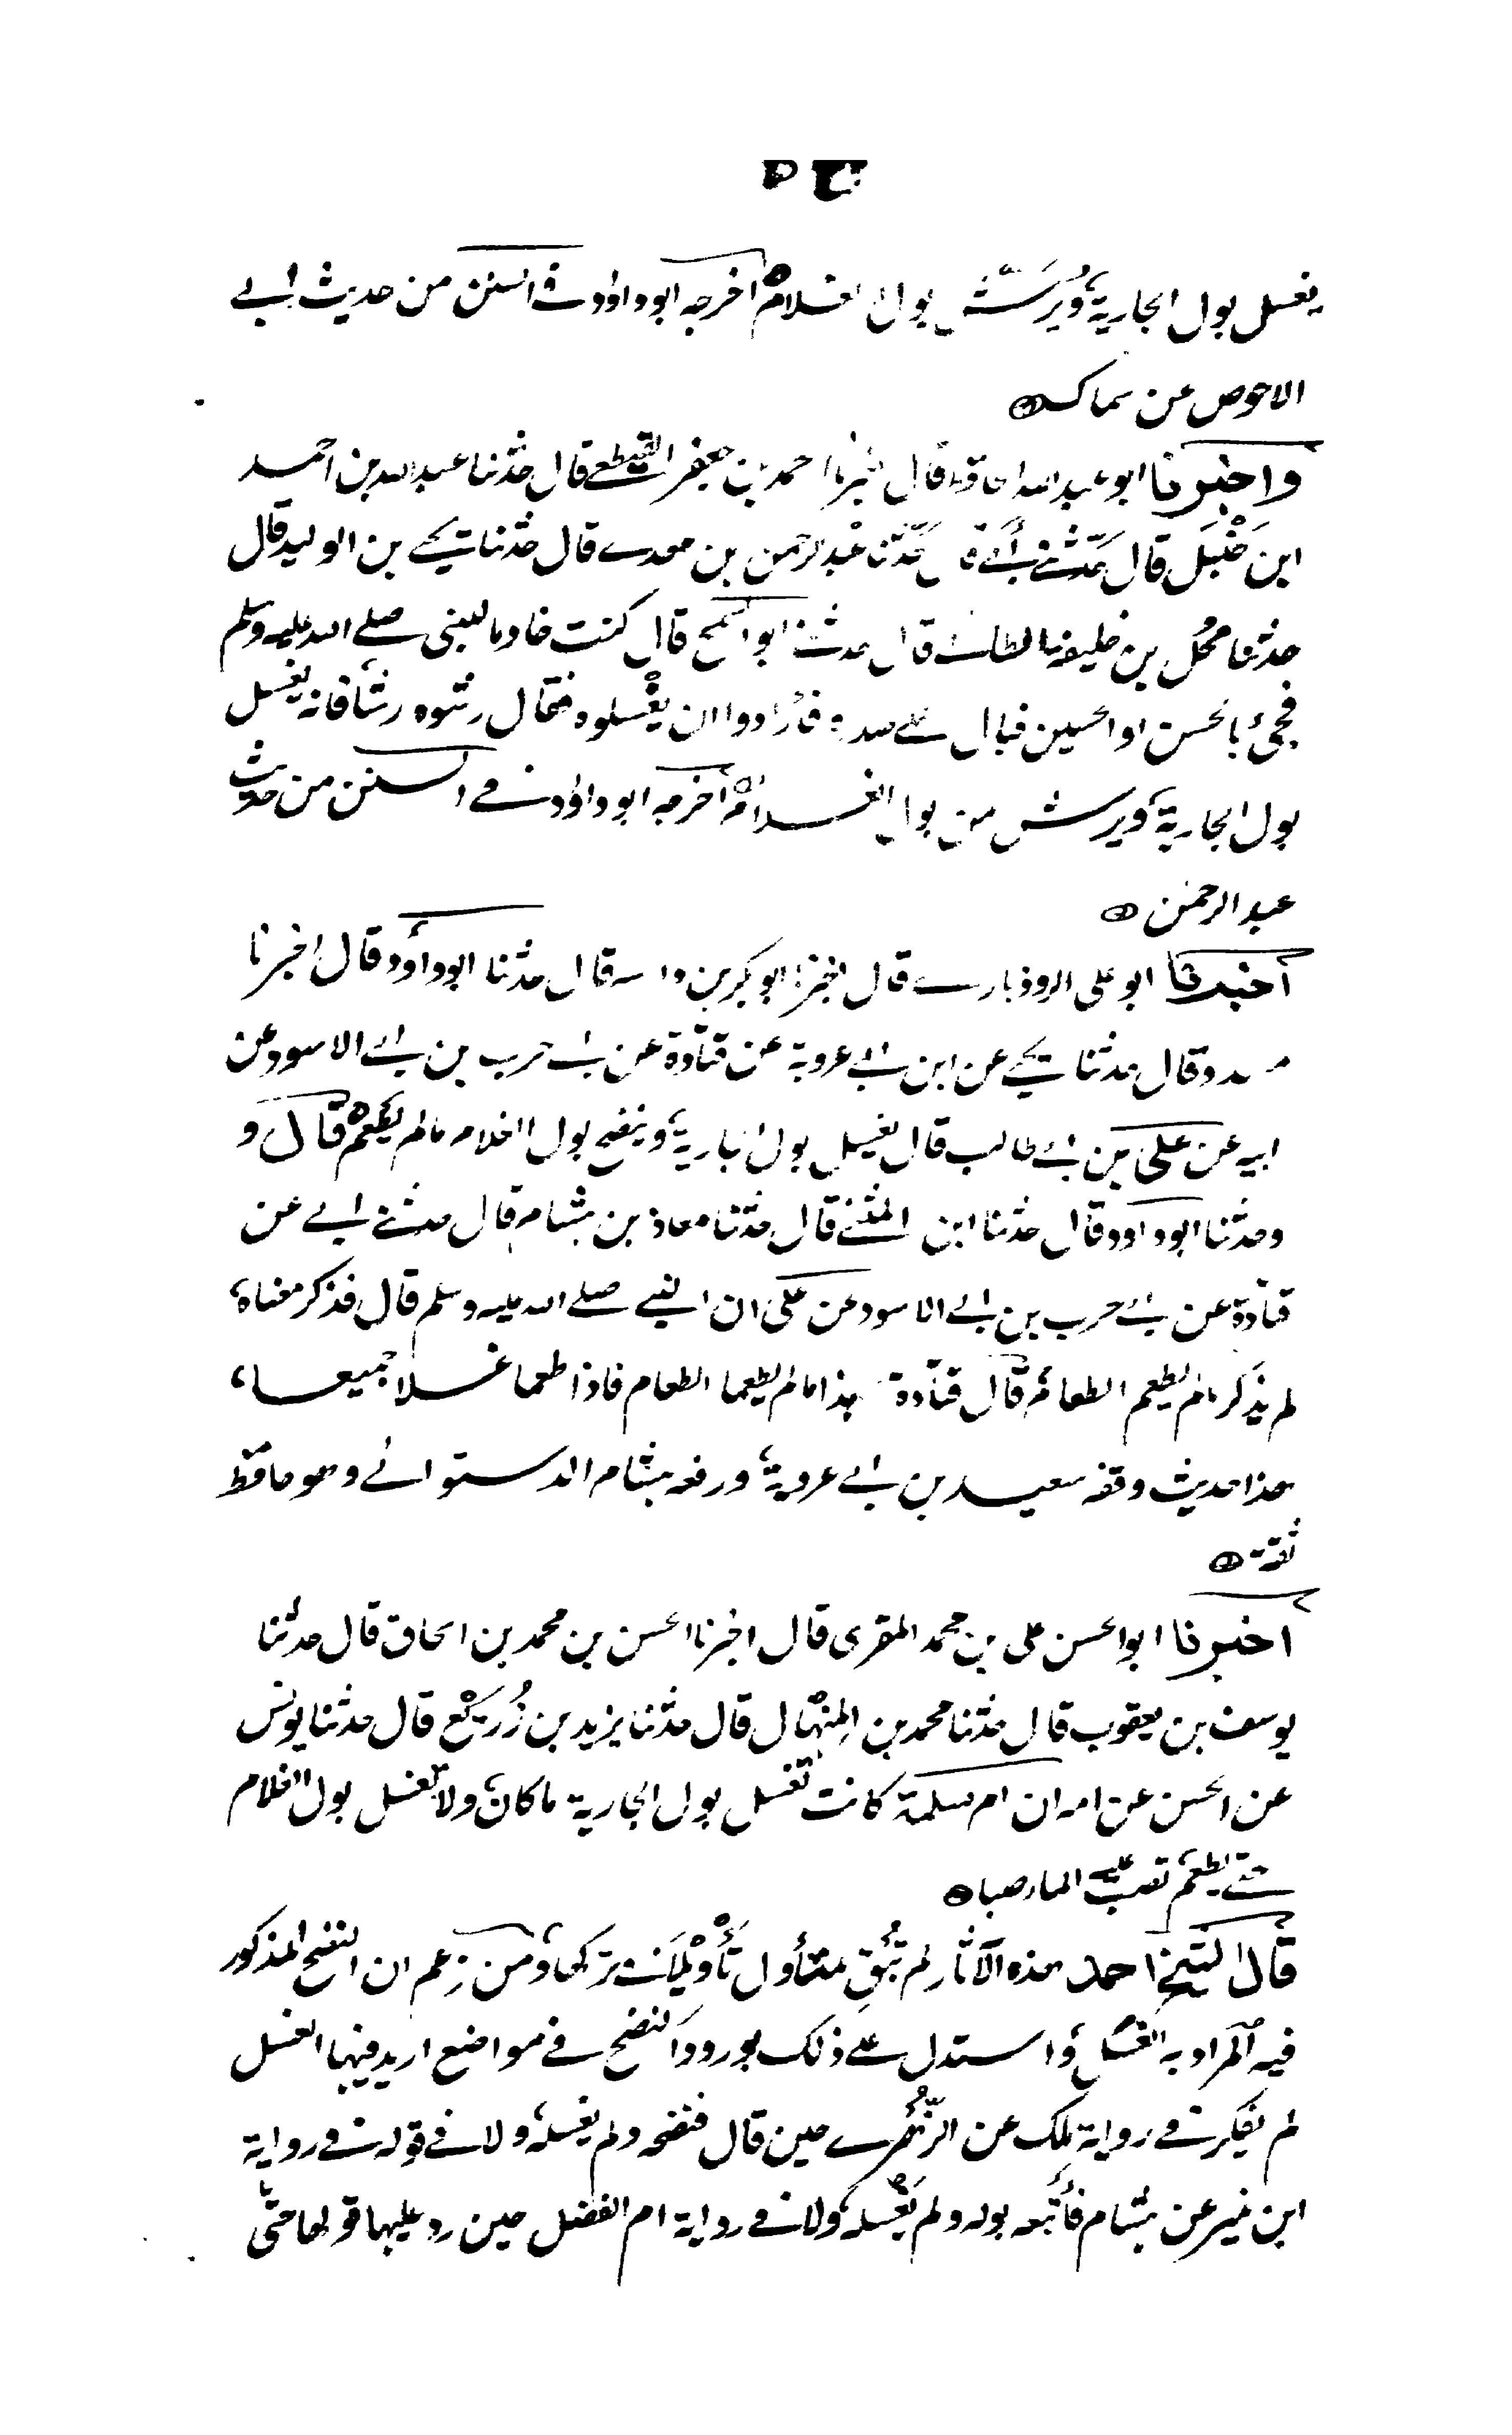 يغسل بول الجارية، ويُرَشّ بول الغلام اخرجه ابو داوود في السنن من حديث ابي
الاحوص عن سماك
واخبرنا ابو عبد الله الحافظ قال اخبرنا احمد بن جعفر القطيعي قال حدثنا عبد الله بن احمد
ابن حَنْبَل قال حدثني أبي قال حدثنا عبد الرحمن بن مهدي قال حدثنا يحيى بن الوليد قال
حدثنا مُحُل بن خليفة الطائي قال حدثني ابو السمح قال كنت خادما للنبي صلى الله عليه وسلم
فجيء بالحسن او الحسين فبال على صدره فأرادوا ان يغسلوه فقال رشوه رشا فانه يغسل
بول الجارية، ويرش من بول الغلام اخرجه ابو داوود في السنن من حديث
عبد الرحمن
أخبرنا ابو علي الروذباري قال اخبرنا ابو بكر بن داسه قال حدثنا ابو داوود قال اخبرنا
مسدد قال حدثنا يحيى عن ابن ابي عروبة عن قتادة عن ابي حرب بن ابي الاسود عن
ابيه عن علي بن ابي طالب قال يغسل بول الجارية، وينضح بول الغلام ما لم يطعم قال و
وحدثنا ابو داوود قال حدثنا ابن المثنى قال حدثنا معاذ بن هشام قال حدثني ابي عن
قتادة عن ابي حرب بن ابي الاسود عن علي ان النبي صلى الله عليه وسلم قال فذكر معناه،
لم يذكر ما لم يطعم الطعام قال قتادة هذا ما لم يطعما الطعام فاذا طعما غسلا جميعا،
هذا حديث وقفه سعيد بن ابي عروبة، ورفعه هشام الدستوائي وهو حافظ
ثقة
اخبرنا ابو الحسن علي بن محمد المقرى قال اخبرنا الحسن بن محمد بن اسحاق قال حدثنا
يوسف بن يعقوب قال حدثنا محمد بن المِنهال قال حدثنا يزيد بن زُرَيْع قال حدثنا يونس
عن الحسن عن امه ان ام سلمة كانت تغسل بول الجارية ما كان، ولا تغسل بول الغلام
حتى يطعم تصب عليه الماء صبا
قال الشيخ احمد هذه الآثار لم تُبْقِ لمتأول تأويلا في تركها، ومن زعم ان النضح المذكور
فيه المراد به الغسل، واستدل على ذلك بورود النضح في مواضع اريد فيها الغسل
لم يفكر في رواية ملك عن الزُّهْري حين قال فنضحه ولم يغسله، ولا في قوله في رواية
ابن نمير عن هشام فأتبعه بوله ولم يغسله، ولا في رواية ام الفضل حين رد عليها قولها حتى